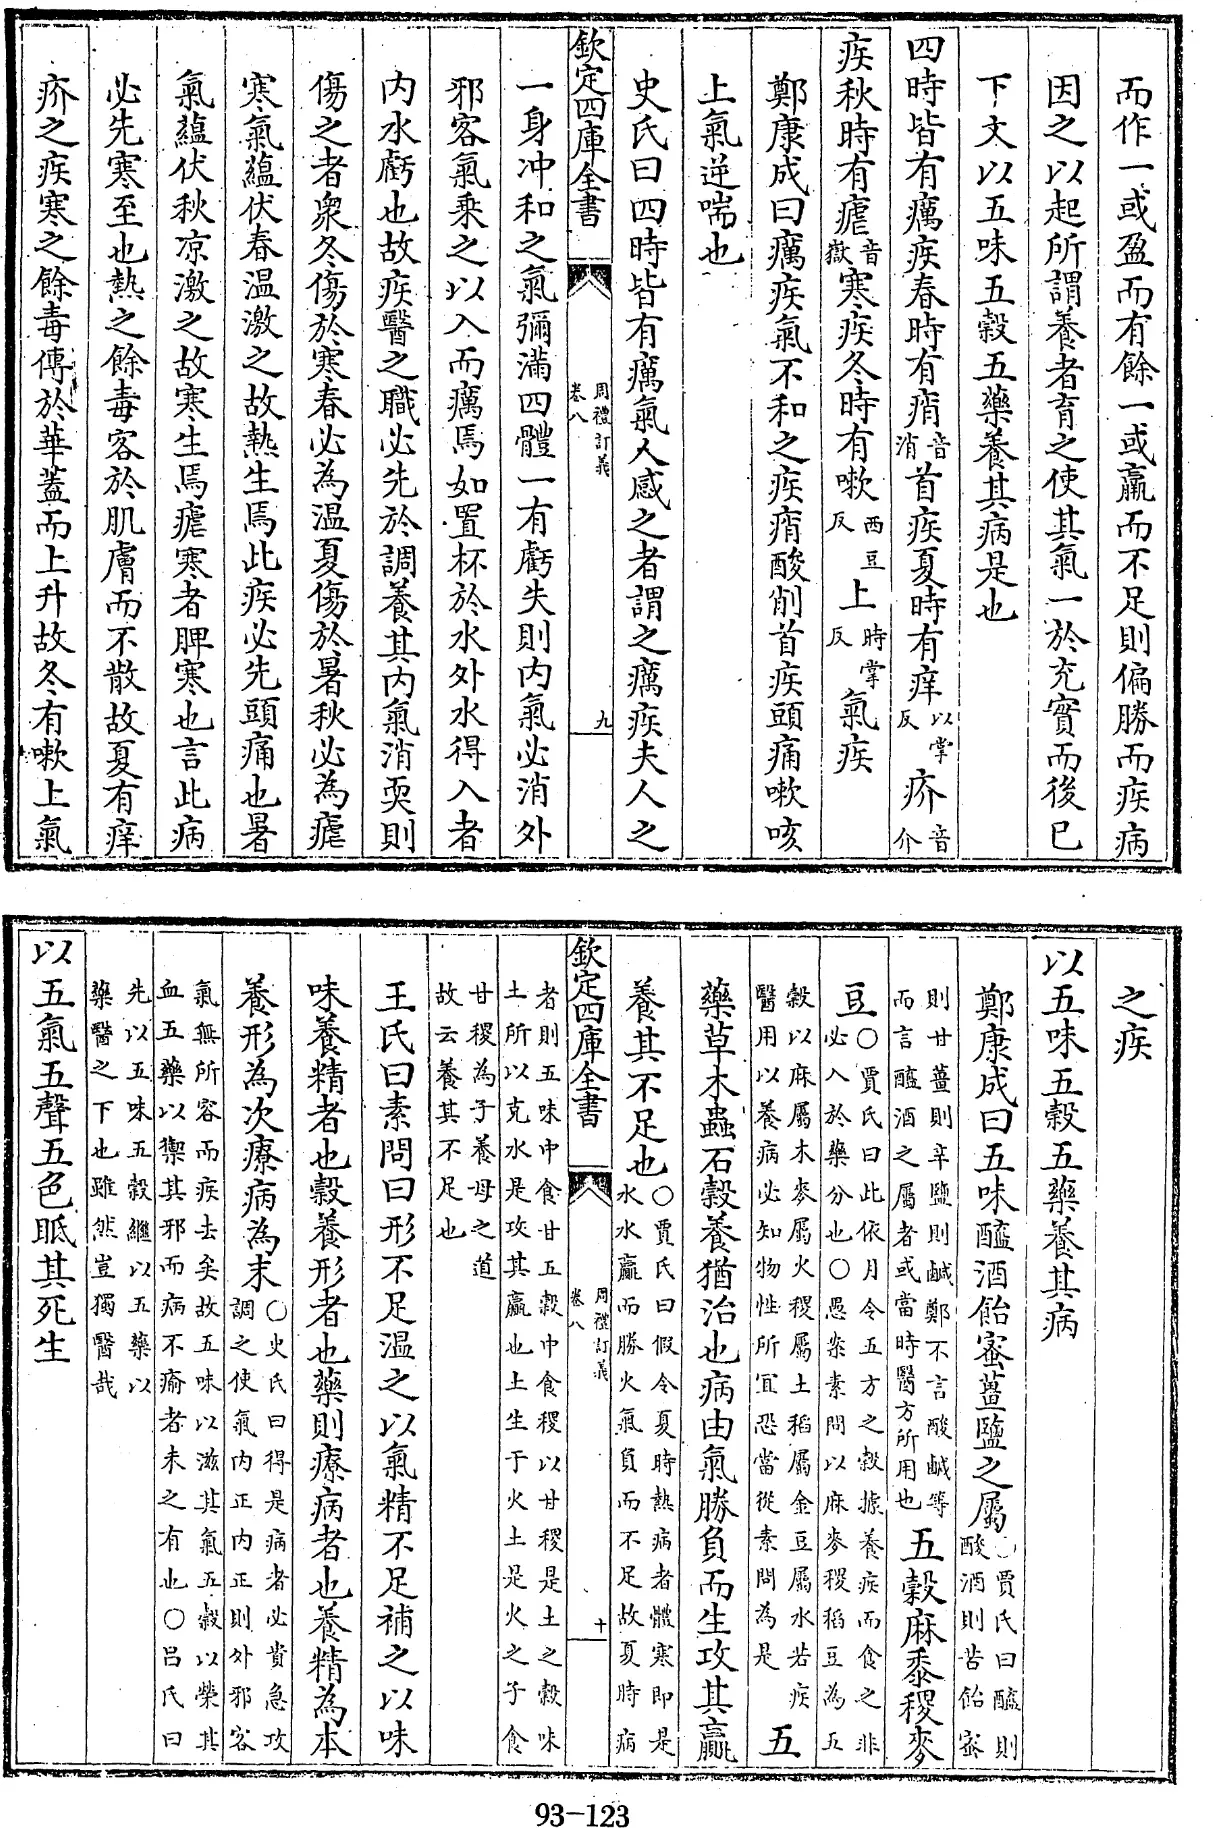 而作一或盈而有餘一或羸而不足則偏勝而疾病
因之以起所謂養者育之使其氣一於充實而後已
下文以五味五穀五藥養其病是也
四時皆有癘疾春時有痟音消首疾夏時有痒以掌反疥音介
疾秋時有瘧音嶽寒疾冬時有嗽西豆反上時掌反氣疾
鄭康成曰癘疾氣不和之疾痟酸削首疾頭痛嗽咳
上氣逆喘也
史氏曰四時皆有癘氣人感之者謂之癘疾夫人之
欽定四庫全書 周禮訂義 卷八 九
一身冲和之氣彌滿四體一有虧失則内氣必消外
邪客氣乘之以入而癘焉如置杯於水外水得入者
内水虧也故疾醫之職必先於調養其内氣消耎則
傷之者衆冬傷於寒春必為温夏傷於暑秋必為瘧
寒氣蘊伏春温激之故熱生焉此疾必先頭痛也暑
氣蘊伏秋凉激之故寒生焉瘧寒者脾寒也言此病
必先寒至也熱之餘毒客於肌膚而不散故夏有痒
疥之疾寒之餘毒傳於華蓋而上升故冬有嗽上氣
之疾
以五味五穀五藥養其病
鄭康成曰五味醯酒飴蜜薑鹽之屬○賈氏曰醯則酸酒則苦飴蜜
則甘薑則辛鹽則鹹鄭不言酸鹹等而言醯酒之屬者或當時醫方所用也五穀麻黍稷麥
豆○賈氏曰此依月令五方之穀據養疾而食之非必入於藥分也○愚案素問以麻麥稷稻豆為五
穀以麻屬木麥屬火稷屬土稻屬金豆屬水若疾醫用以養病必知物性所宜恐當從素問為是五
藥草木蟲石穀養猶治也病由氣勝負而生攻其贏
養其不足也○賈氏曰假令夏時熱病者體寒即是水水贏而勝火氣負而不足故夏時病
欽定四庫全書 周禮訂義 卷八 十
者則五味中食甘五穀中食稷以甘稷是土之穀味土所以克水是攻其贏也土生于火土是火之子食
甘稷為子養母之道故云養其不足也
王氏曰素問曰形不足温之以氣精不足補之以味
味養精者也穀養形者也藥則療病者也養精為本
養形為次療病為末○史氏曰得是病者必貴急攻調之使氣内正内正則外邪客
氣無所容而疾去矣故五味以滋其氣五穀以榮其血五藥以禦其邪而病不瘉者未之有也○呂氏曰
先以五味五穀繼以五藥以藥醫之下也雖然豈獨醫哉
以五氣五聲五色眡其死生
93-123